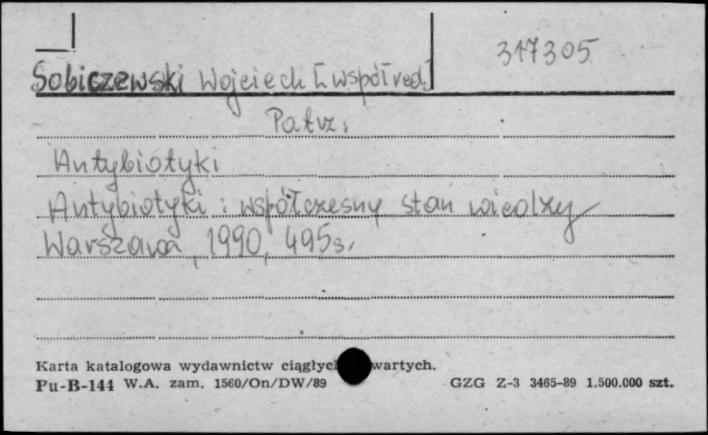 317305
Sobiczewski Wojciech [współred.]
Patrz:
Antybiotyki
Antybiotyki : współczesny stan wiedzy
Warszawa, 1990, 495 s.
Karta katalogowa wydawnictw ciągłych wartych.
Pu-B-144 W.A. zam. 1560/On/DW/89 GZG Z-3 3465-89 1.500.000 szt.